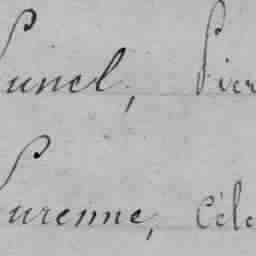 Punel, Pier
Purenne, Céle